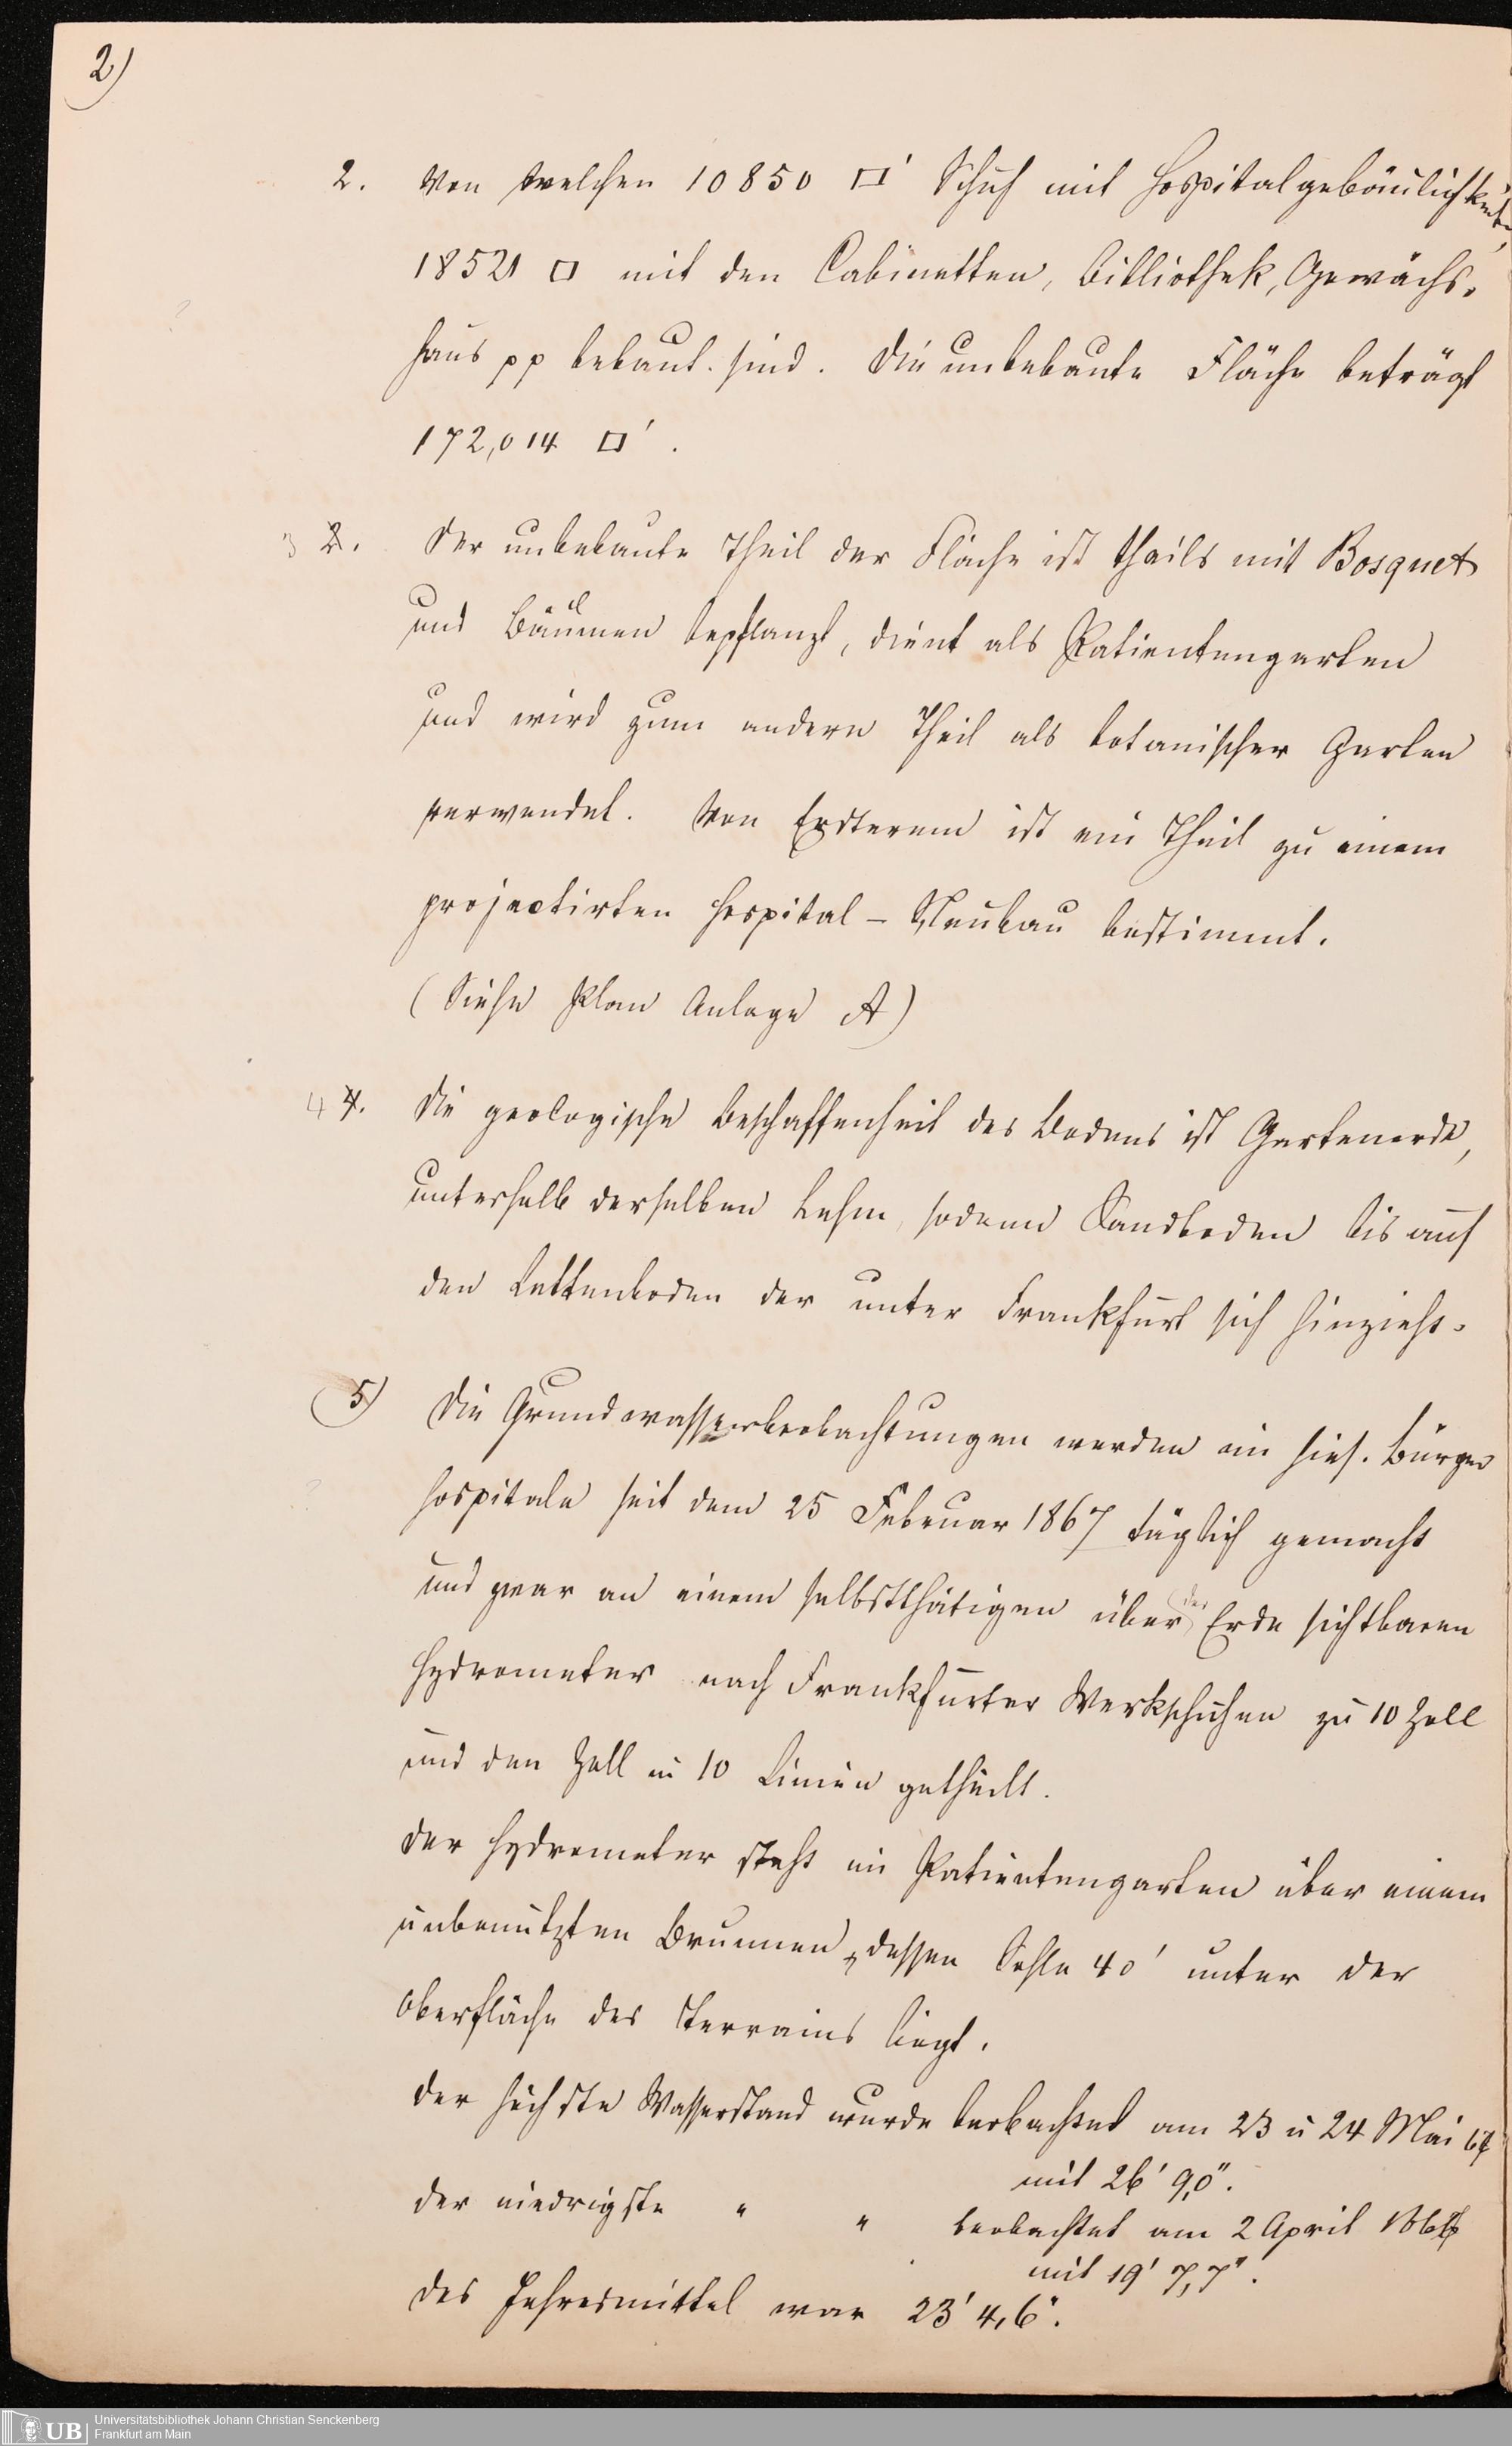 2)
2. Von welchen 10850 □' Schuh mit Hospitalgebäulichkeiten,
18521 □ mit den Cabinetten, Bibliothek, Gewächs-
haus pp bebaut sind. Die unbebaute Fläche beträgt
172,014 □'.
3 2. Der unbebaute Theil der Fläche ist theils mit Bosquet
und Bäumen bepflanzt, dient als Patientengarten
und wird zum andern Theil als botanischer Garten
verwendet. Von Ersterem ist ein Theil zu einem
projectirten Hospital-Neubau bestimmt.
(Siehe Plan Anlage A)
4 4. Die geologische Beschaffenheit des Bodens ist Gartenerde,
unterhalb derselben Lehm, sodann Sandboden bis auf
den Lettenboden der unter Frankfurt sich hinzieht.
5) Die Grundwasserbeobachtungen werden im hies. Bürger
hospitale seit dem 25 Februar 1867 täglich gemacht
und zwar an einem selbstthätigen über der Erde sichtbaren
Hydrometer nach Frankfurter Werkschuhen zu 10 Zoll
und den Zoll in 10 Linien getheilt.
Der Hydrometer steht im Patientengarten über einem
unbenutzten Brunnen, dessen Sohle 40' unter der
Oberfläche des Terrains liegt.
Der höchste Wasserstand wurde beobachtet am 23 u 24 Mai 67
mit 26' 9,0".
Der niedrigste " " beobachtet am 2 April
mit 19' 7,7".
Das Jahresmittel war 23' 4,6".
UB
Universitätsbibliothek Johann Christian Senckenberg
Frankfurt am Main